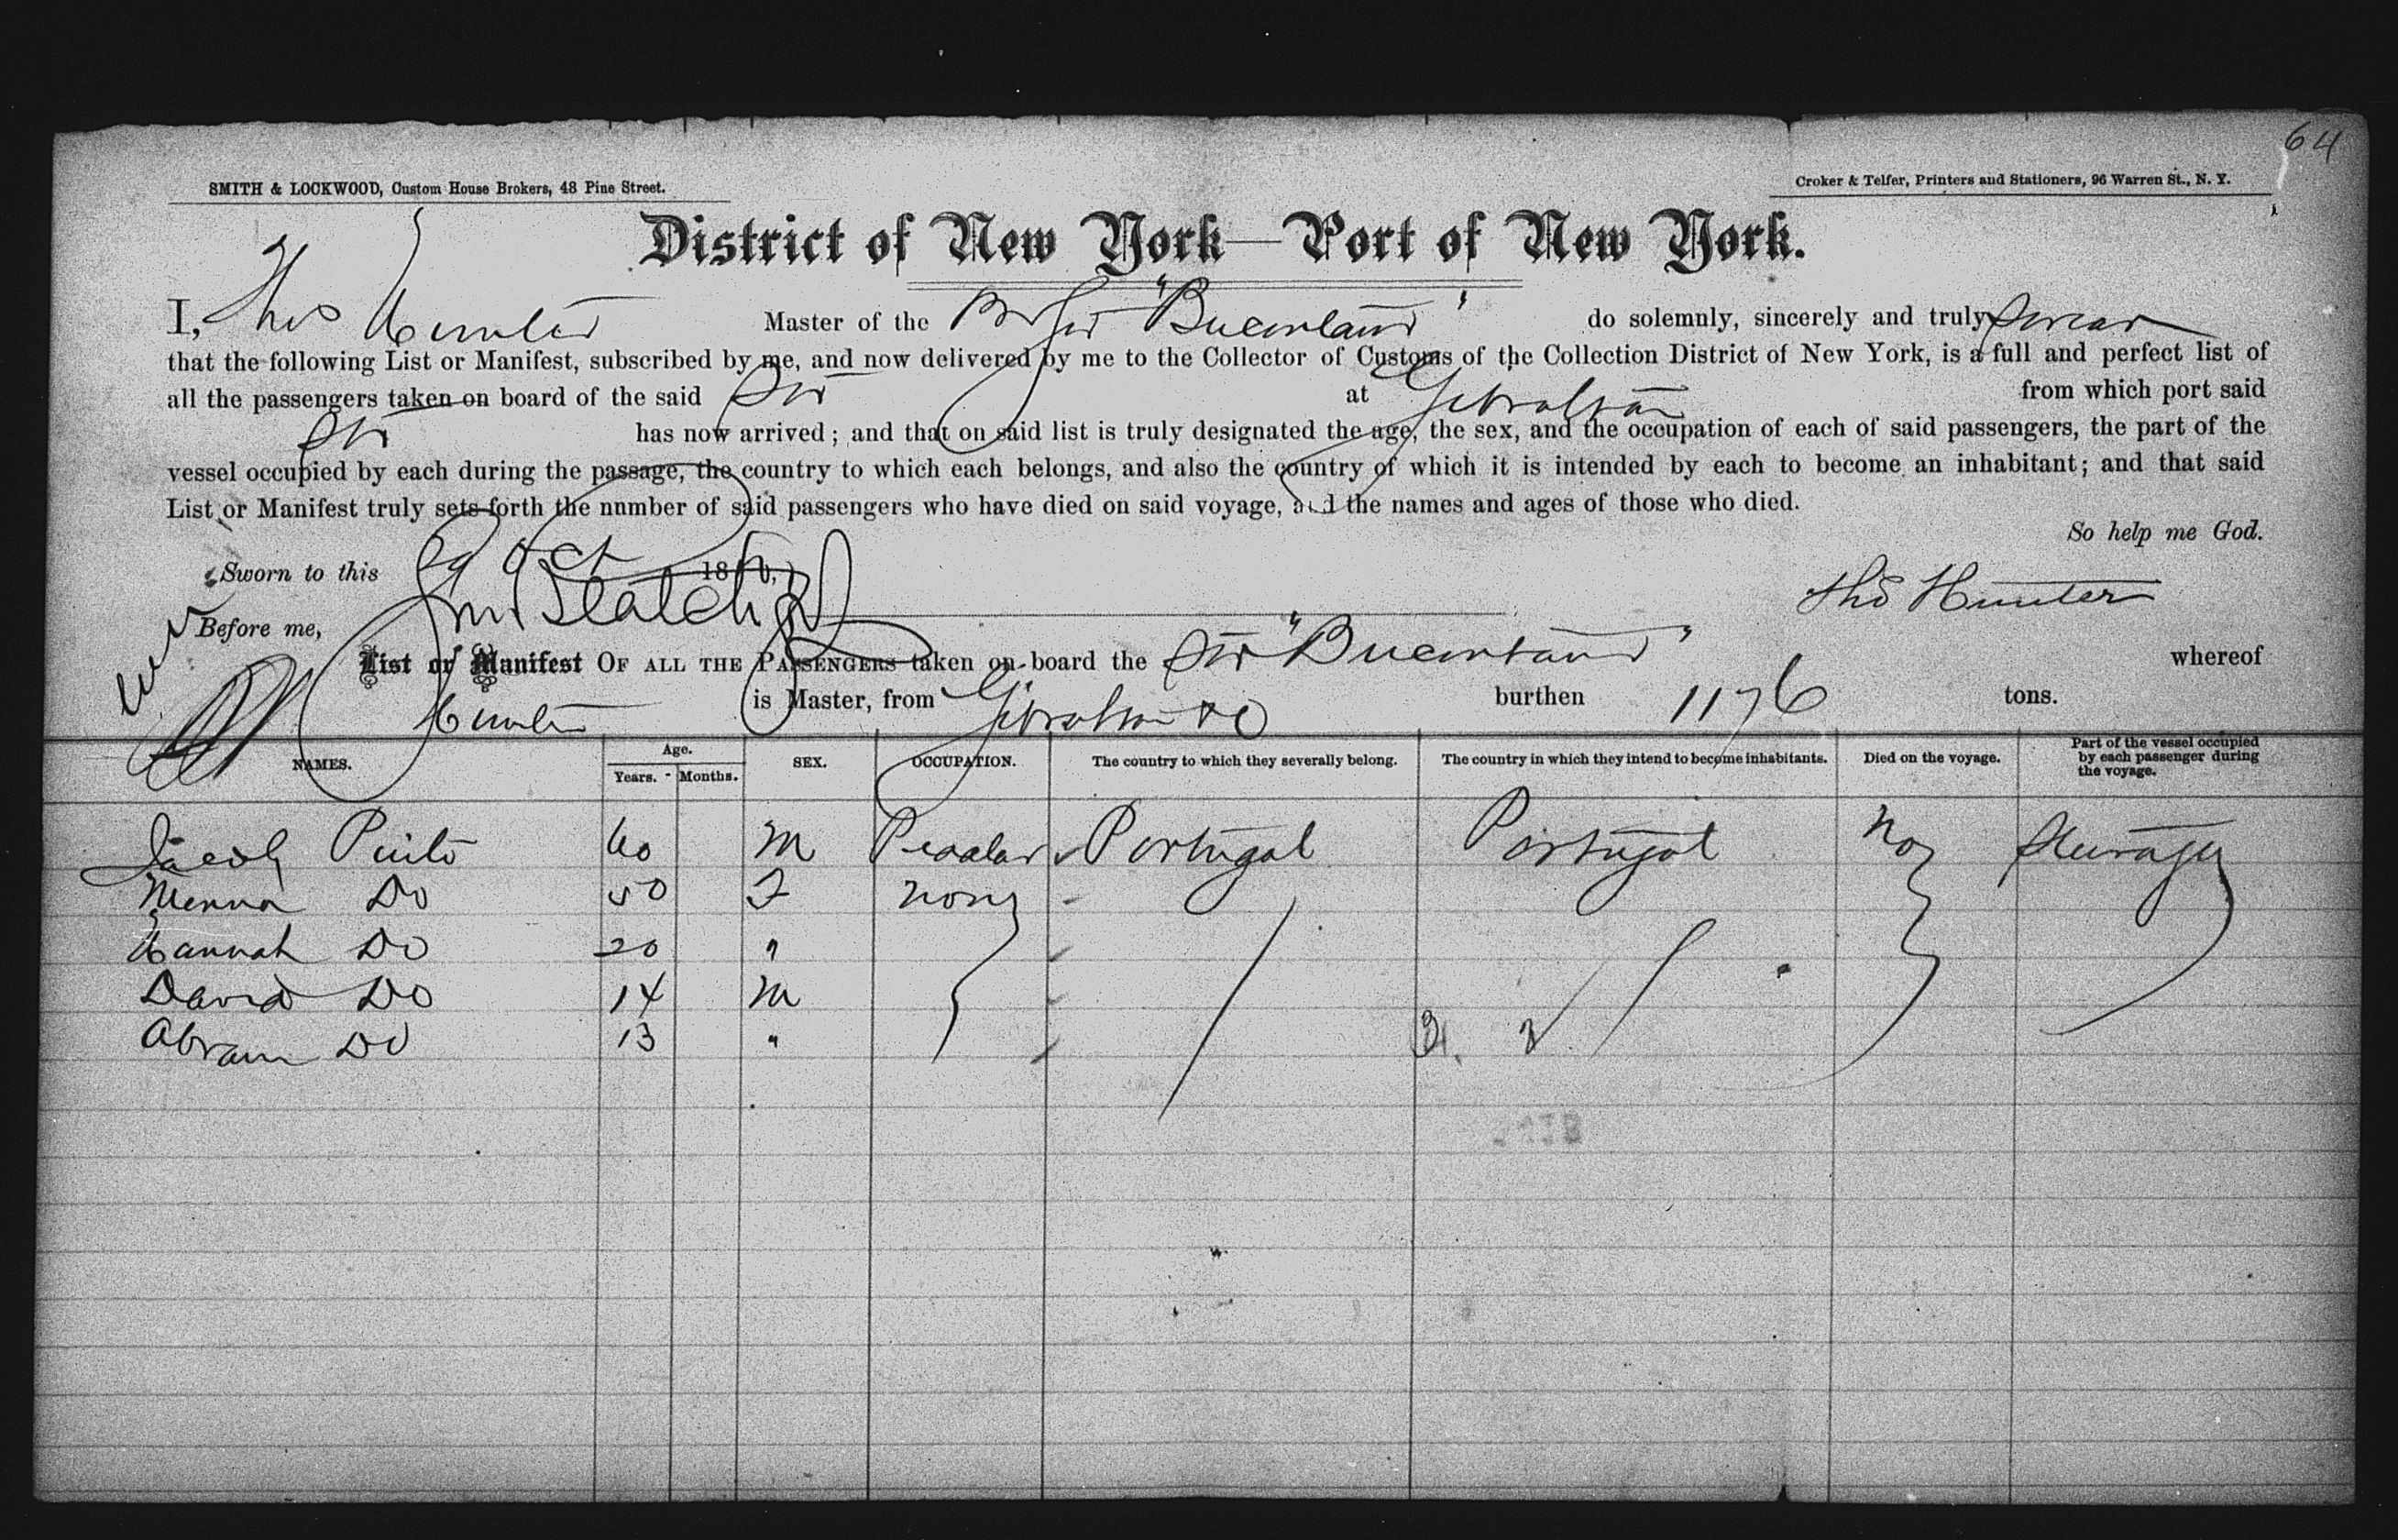 64
SMITH & LOCKWOOD, Custom House Brokers, 48 Pine Street.
Croker & Telfer, Printers and Stationers, 96 Warren St., N. Y.
District of New York—Port of New York.
I, Thos Hunter Master of the Br Str " " do solemnly, sincerely and truly swear
that the following List or Manifest, subscribed by me, and now delivered by me to the Collector of Customs of the Collection District of New York, is a full and perfect list of
all the passengers taken on board of the said Str at Gibraltar from which port said
Str has now arrived; and that on said list is truly designated the age, the sex, and the occupation of each of said passengers, the part of the
vessel occupied by each during the passage, the country to which each belongs, and also the country of which it is intended by each to become an inhabitant; and that said
List or Manifest truly sets forth the number of said passengers who have died on said voyage, and the names and ages of those who died.
So help me God.
Sworn to this 29 Oct 18
Thos Hunter
Before me,
List or Manifest OF ALL THE PASSENGERS taken on board the Str " " whereof
Hunter is Master, from Gibraltar &c burthen 1176 tons.
NAMES. Age. Years. Months. SEX. OCCUPATION. The country to which they severally belong. The country in which they intend to become inhabitants. Died on the voyage. Part of the vessel occupied by each passenger during the voyage.
Jacob Pinto 60 M Portugal Portugal No Steerage
Do 50 F None
Hannah Do 20 "
David Do 14 M
Abram Do 13 "